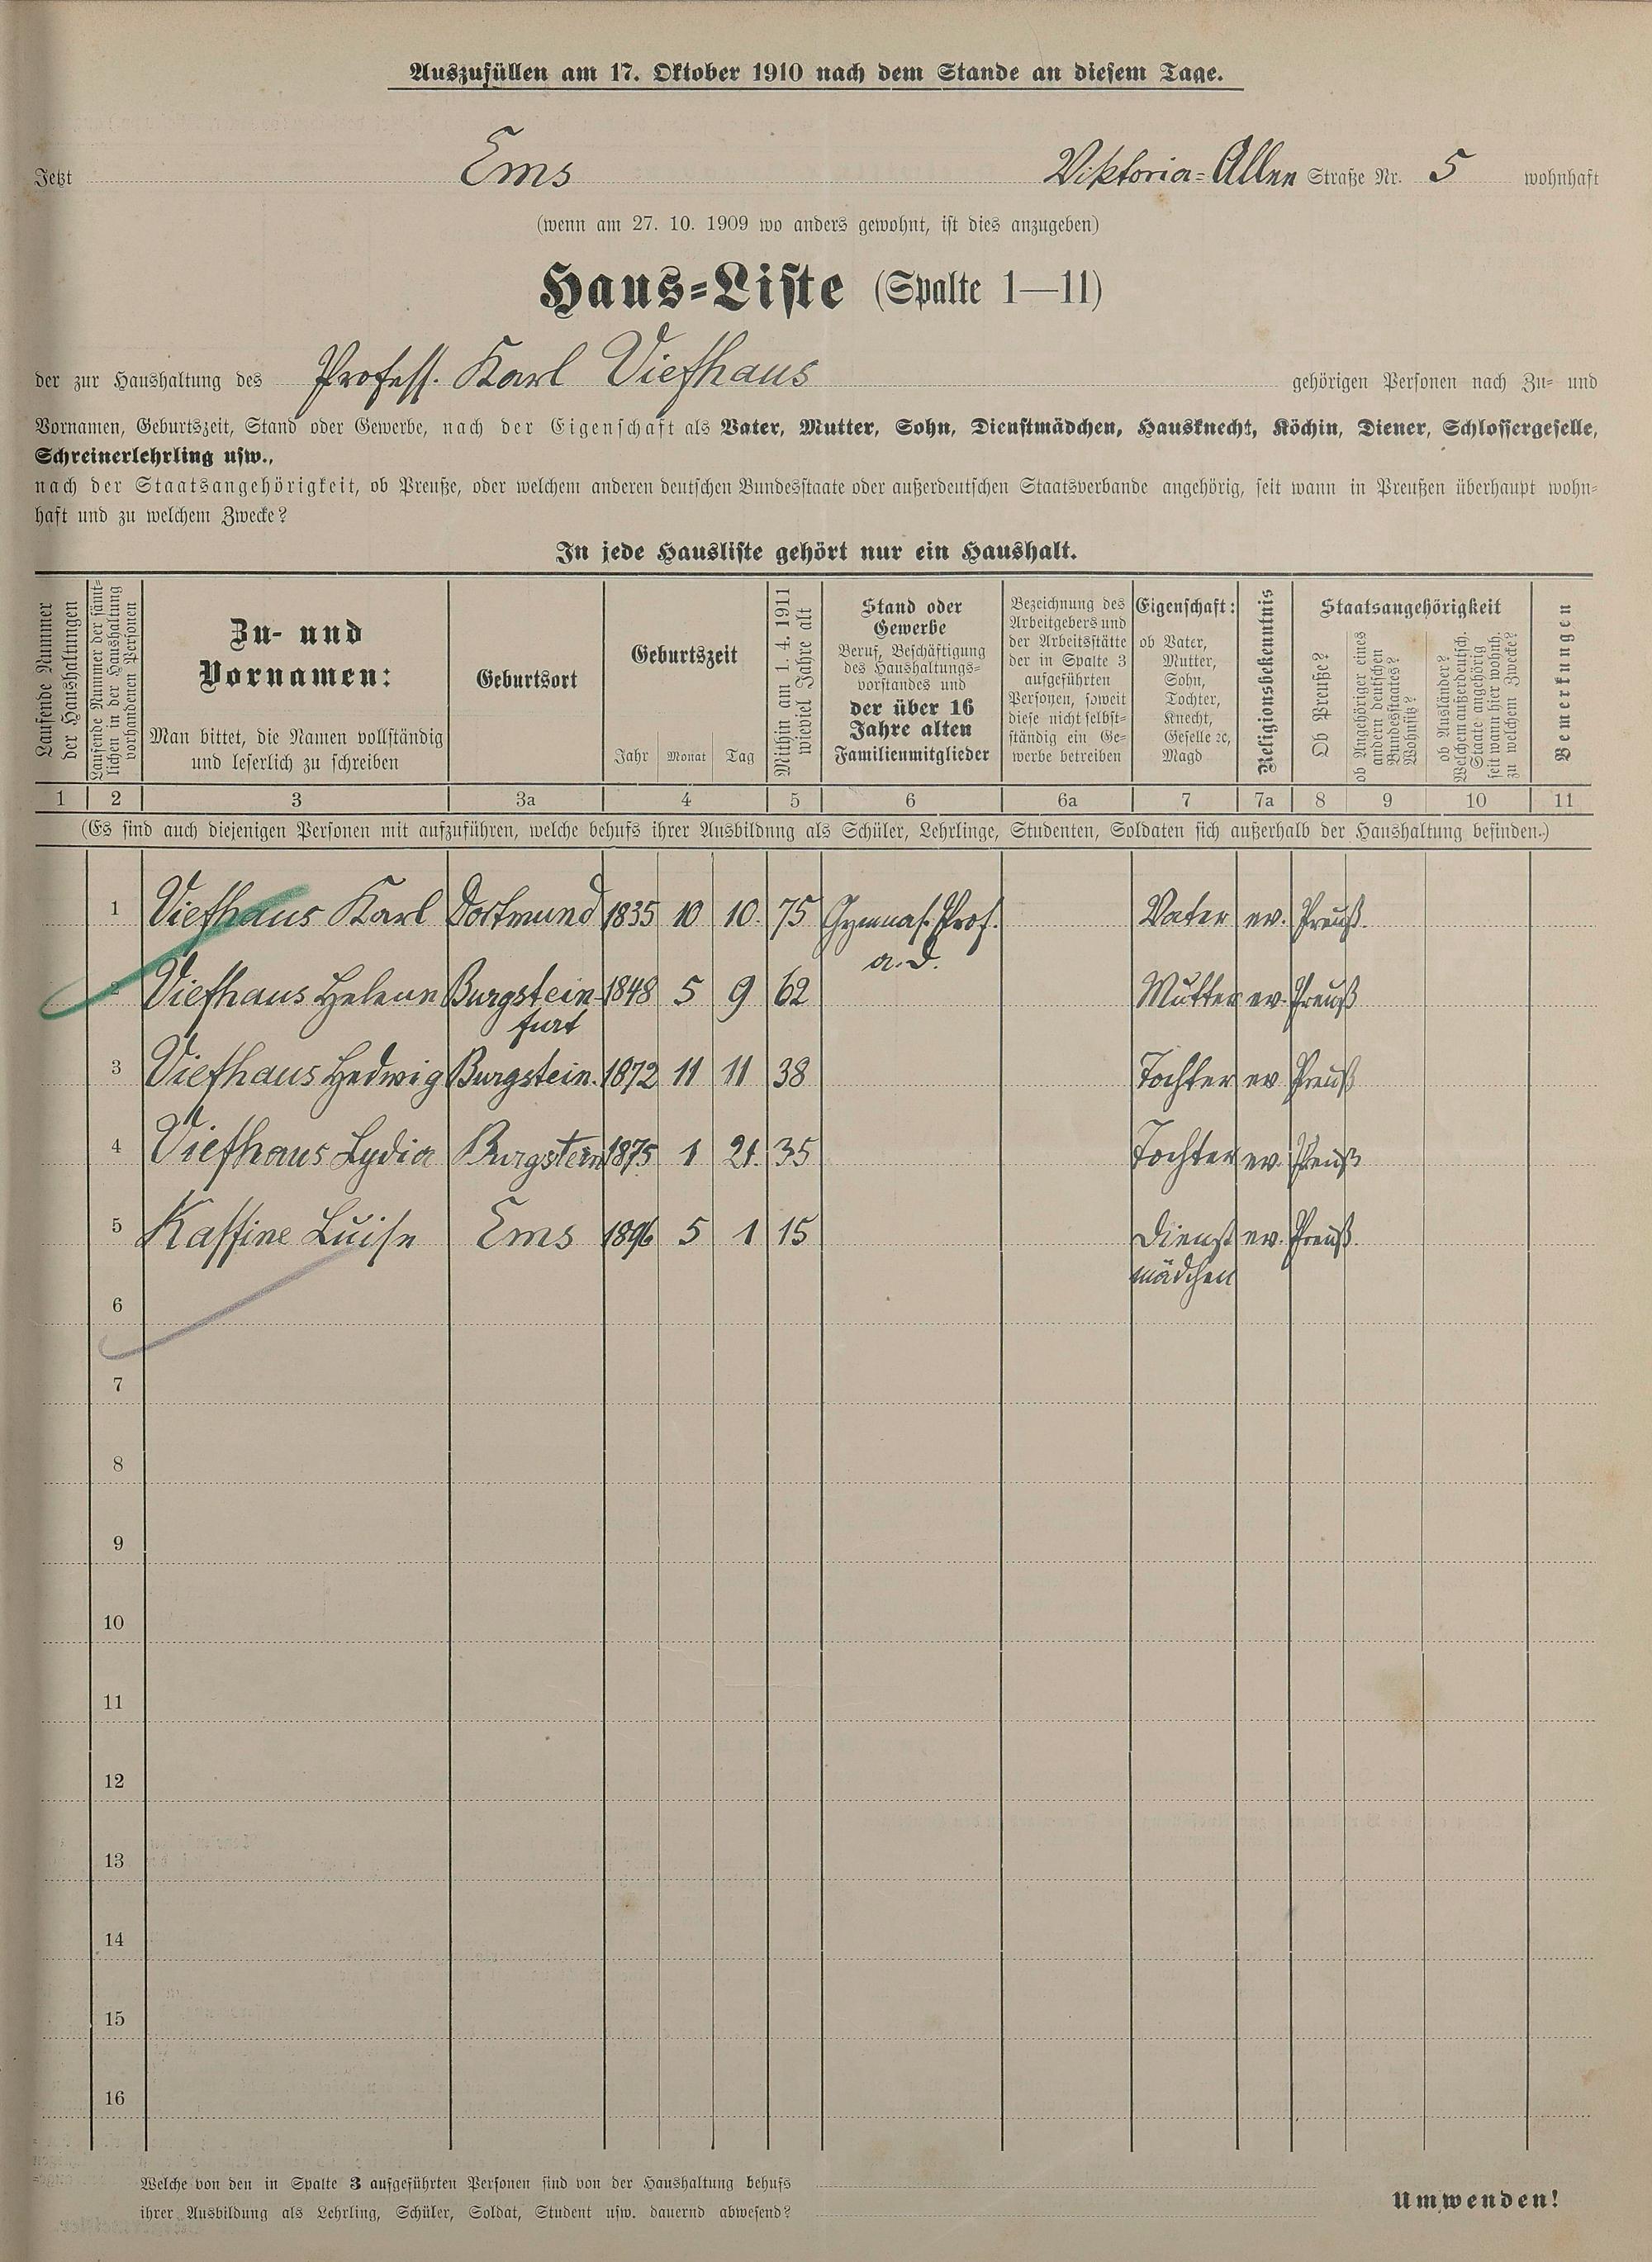 Auszufüllen am 17. Oktober 1910 nach dem Stande an diesem Tage.
Jetzt Ems Viktoria=Allee Straße Nr. 5 wohnhaft
(wenn am 27. 10. 1909 wo anders gewohnt, ist dies anzugeben)
Haus=Liste (Spalte 1—11)
der zur Haushaltung des Profess. Karl Viefhaus gehörigen Personen nach Zu= und
Vornamen, Geburtszeit, Stand oder Gewerbe, nach der Eigenschaft als Vater, Mutter, Sohn, Dienstmädchen, Hausknecht, Köchin, Diener, Schlossergeselle,
Schreinerlehrling usw.,
nach der Staatsangehörigkeit, ob Preuße, oder welchem anderen deutschen Bundesstaate oder außerdeutschen Staatsverbande angehörig, seit wann in Preußen überhaupt wohn=
haft und zu welchem Zwecke?
In jede Hausliste gehört nur ein Haushalt.
Laufende Nummer
der Haushaltungen
Laufende Nummer der sämt=
lichen in der Haushaltung
vorhandenen Personen
Zu- und
Vornamen:
Man bittet, die Namen vollständig
und leserlich zu schreiben
Geburtsort
Geburtszeit
Jahr Monat Tag
Mithin am 1. 4. 1911
wieviel Jahre alt
Stand oder
Gewerbe
Beruf, Beschäftigung
des Haushaltungs=
vorstandes und
der über 16
Jahre alten
Familienmitglieder
Bezeichnung des
Arbeitgebers und
der Arbeitsstätte
der in Spalte 3
aufgeführten
Personen, soweit
diese nicht selbst=
ständig ein Ge=
werbe betreiben
Eigenschaft:
ob Vater,
Mutter,
Sohn,
Tochter,
Knecht,
Geselle ꝛc,
Magd
Religionsbekenntnis
Staatsangehörigkeit
Ob Preuße?
ob Angehöriger eines
andern deutschen
Bundesstaates?
Wohnsitz?
ob Ausländer?
Welchem außerdeutsch.
Staate angehörig
seit wann hier wohnh.
zu welchem Zwecke?
Bemerkungen
1 2 3 3a 4 5 6 6a 7 7a 8 9 10 11
(Es sind auch diejenigen Personen mit aufzuführen, welche behufs ihrer Ausbildung als Schüler, Lehrlinge, Studenten, Soldaten sich außerhalb der Haushaltung befinden.)
1 Viefhaus Karl Dortmund 1835 10 10. 75 Gymnas. Prof. Vater ev. Preuß.
a. D.
2 Viefhaus Helene Burgstein- 1848 5 9 62 Mutter ev. Preuß
furt
3 Viefhaus Hedwig Burgstein. 1872 11 11 38 Tochter ev Preuß
4 Viefhaus Lydia Burgstein 1875 1 21. 35 Tochter ev. Preuß
5 Kaffine Luise Ems 1896 5 1 15 Dienst ev. Preuß.
mädchen
6
7
8
9
10
11
12
13
14
15
16
Welche von den in Spalte 3 aufgeführten Personen sind von der Haushaltung behufs
ihrer Ausbildung als Lehrling, Schüler, Soldat, Student usw. dauernd abwesend?
Umwenden!